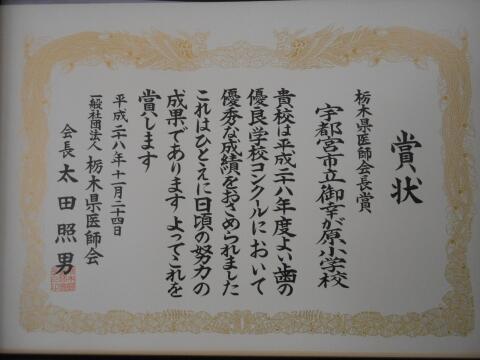 賞状
栃木県医師会長賞
宇都宮市立御幸が原小学校
貴校は平成二十八年度よい歯の
優良学校コンクールにおいて
優秀な成績をおさめられました
これはひとえに日頃の努力の
成果であります よってこれを
賞します
平成二十八年十一月二十四日
一般社団法人 栃木県医師会
会長 太田照男